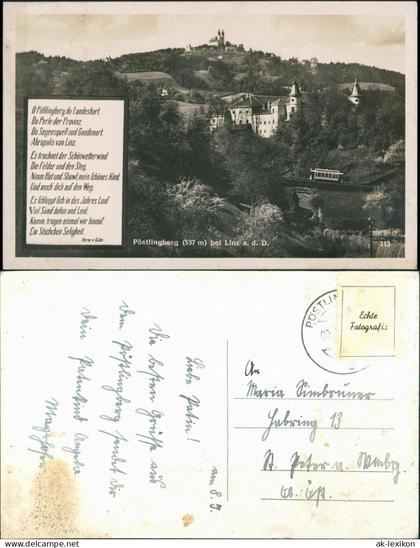 O Pöstlingberg, du Landeshort,
Du Perle der Provinz,
Du Segensquell und Gnadenort,
Akropolis von Linz.
Es trocknet der Schönwetterwind
Die Felder und den Steg,
Nimm Hut und Shawl, mein schönes Kind,
Und mach dich auf den Weg.
Es schleppt sich in des Jahres Lauf
Viel Sünd dahin und Leid,
Komm, tragen einmal wir hinauf
Ein Stückchen Seligkeit.
Herm. v. Gilm.
Pöstlingberg (537 m) bei Linz a. d. D.
113
PÖSTLIN
Echte
Fotografie
Liebe Patin!
am 8. 9.
Die besten Grüße aus
dem Pöstlingberg sendet dir
dein Patenkind Angela
An
Maria Simbrunner
Habring 13
St. Peter a. Wmbg
Ob. Öst.
www.ak-ansichtskarten.de
ak-lexikon